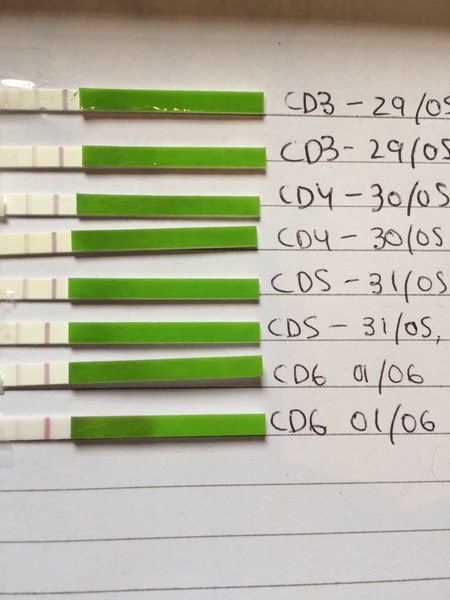 CD3 - 29/05
CD3 - 29/05
CD4 - 30/05
CD4 - 30/05
CD5 - 31/05
CD5 - 31/05,
CD6 01/06
CD6 01/06